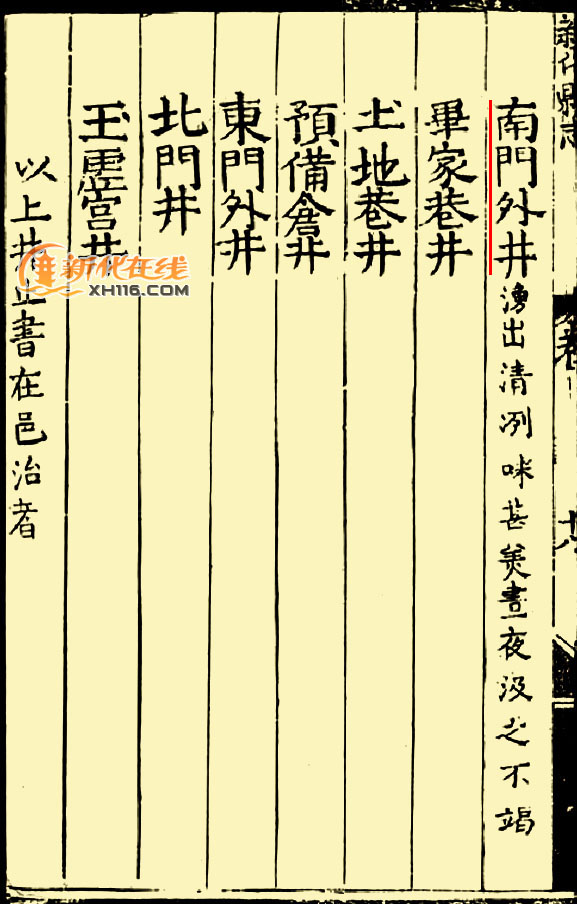 新化縣志
卷
南門外井 湧出清冽味甚美晝夜汲之不竭
畢家巷井
土地巷井
預備倉井
東門外井
北門井
玉虛宮井
以上井止書在邑治者
新化在线
XH116.COM